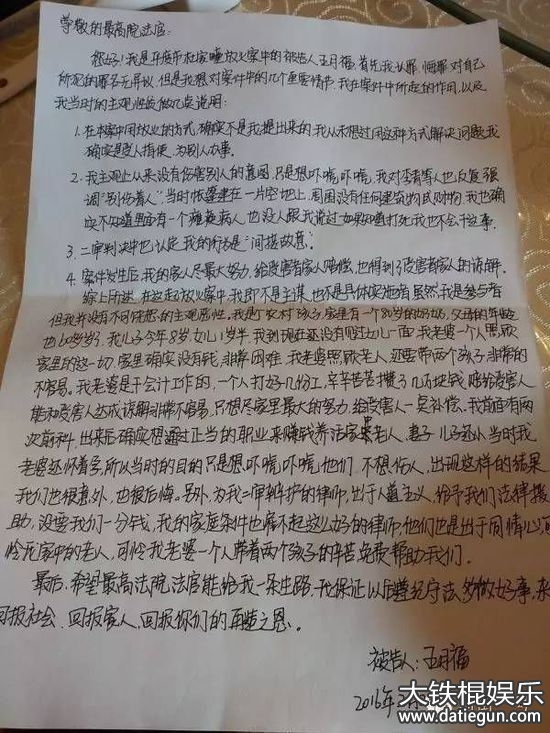 尊敬的最高院法官:
您好!我是平度市杜家疃放火案中的被告王月福,首先我认罪、悔罪,对自己
所犯的罪名无异议,但是我想对案件中的几个重要情节,我在案件中所起的作用,以及
我当时的主观性质做几点说明:
1、在本案中用放火的方式,确实不是我提出来的,我从未想过用这种方式解决问题,我
确实是受人指使,为别人办事。
2、我主观上从来没有伤害别人的意图,只是想吓唬吓唬,我对李青等人也反复强
调"别伤着人",当时帐篷建在一片空地上,周围没有任何建筑物或财物,我也确
实不知道里面有一个瘫痪病人,也没人跟我说过,如果知道打死我也不会干这事。
3、二审判决中也认定我的行为是"间接故意"。
4、案件发生后,我的家人尽最大努力,给受害者家人赔偿,也得到了受害者家人的谅解。
综上所述,在这起放火案中,我即不是主谋,也不是具体实施者,虽然我是参与者
但我并没有不同的主观恶性,我是个农村孩子,家里有一个80岁的奶奶,父母的年龄
也60多岁了,我儿子今年8岁,女儿1岁半,我到现在还没有见过女儿一面,我老婆一个人照顾
家里的这一切,家里确实没有钱,非常困难,我老婆照顾老人,还要带两个孩子,非常的
不容易。我老婆是干会计工作的,一个人打好几份工,辛辛苦苦攒了几万块钱,赔给受害人,
能和受害人达成谅解非常不容易,只想尽家里最大的努力,给受害人一点补偿。我前面有两
次前科,出来后确实想通过正当的职业来赚钱养活家里老人、妻子、儿子,还从当时我
老婆还怀着孕,所以当时的目的只是想吓唬吓唬他们,不想伤人,出现这样的结果
我们也很意外,也很后悔。另外,为我二审辩护的律师,出于人道主义,给予我们法律援
助,没要我们一分钱,我的家庭条件也雇不起这么好的律师,他们也是出于同情心,可
怜我家中的老人,可怜我老婆一个人带着两个孩子的辛苦免费帮助我们。
最后,希望最高法院法官能给我一条生路,我保证以后遵纪守法,多做好事,来
回报社会、回报家人、回报你们的再造之恩。
被告人:王月福
2016年
大铁棍娱乐
www.datiegun.com